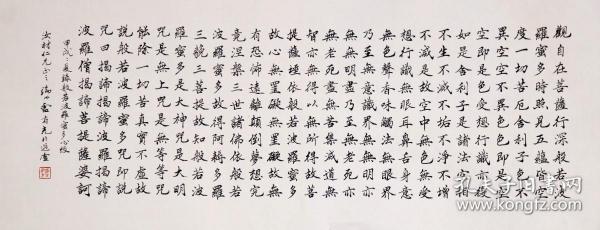 觀自在菩薩行深般若波
羅蜜多時照見五蘊皆空
度一切苦厄舍利子色不
異空空不異色色即是空
空即是色受想行識亦復
如是舍利子是諸法空相
不生不滅不垢不淨不增
不減是故空中無色無受
想行識無眼耳鼻舌身意
無色聲香味觸法無眼界
乃至無意識界無無明亦
無無明盡乃至無老死亦
無老死盡無苦集滅道無
智亦無得以無所得故菩
提薩埵依般若波羅蜜多
故心無罣礙無罣礙故無
有恐怖遠離顛倒夢想究
竟涅槃三世諸佛依般若
波羅蜜多故得阿耨多羅
三藐三菩提故知般若波
羅蜜多是大神咒是大明
咒是無上咒是無等等咒
能除一切苦真實不虛故
說般若波羅蜜多咒即說
咒曰揭諦揭諦波羅揭諦
波羅僧揭諦菩提薩婆訶
甲戌之夏錄般若波羅蜜多心經
仁兄正之